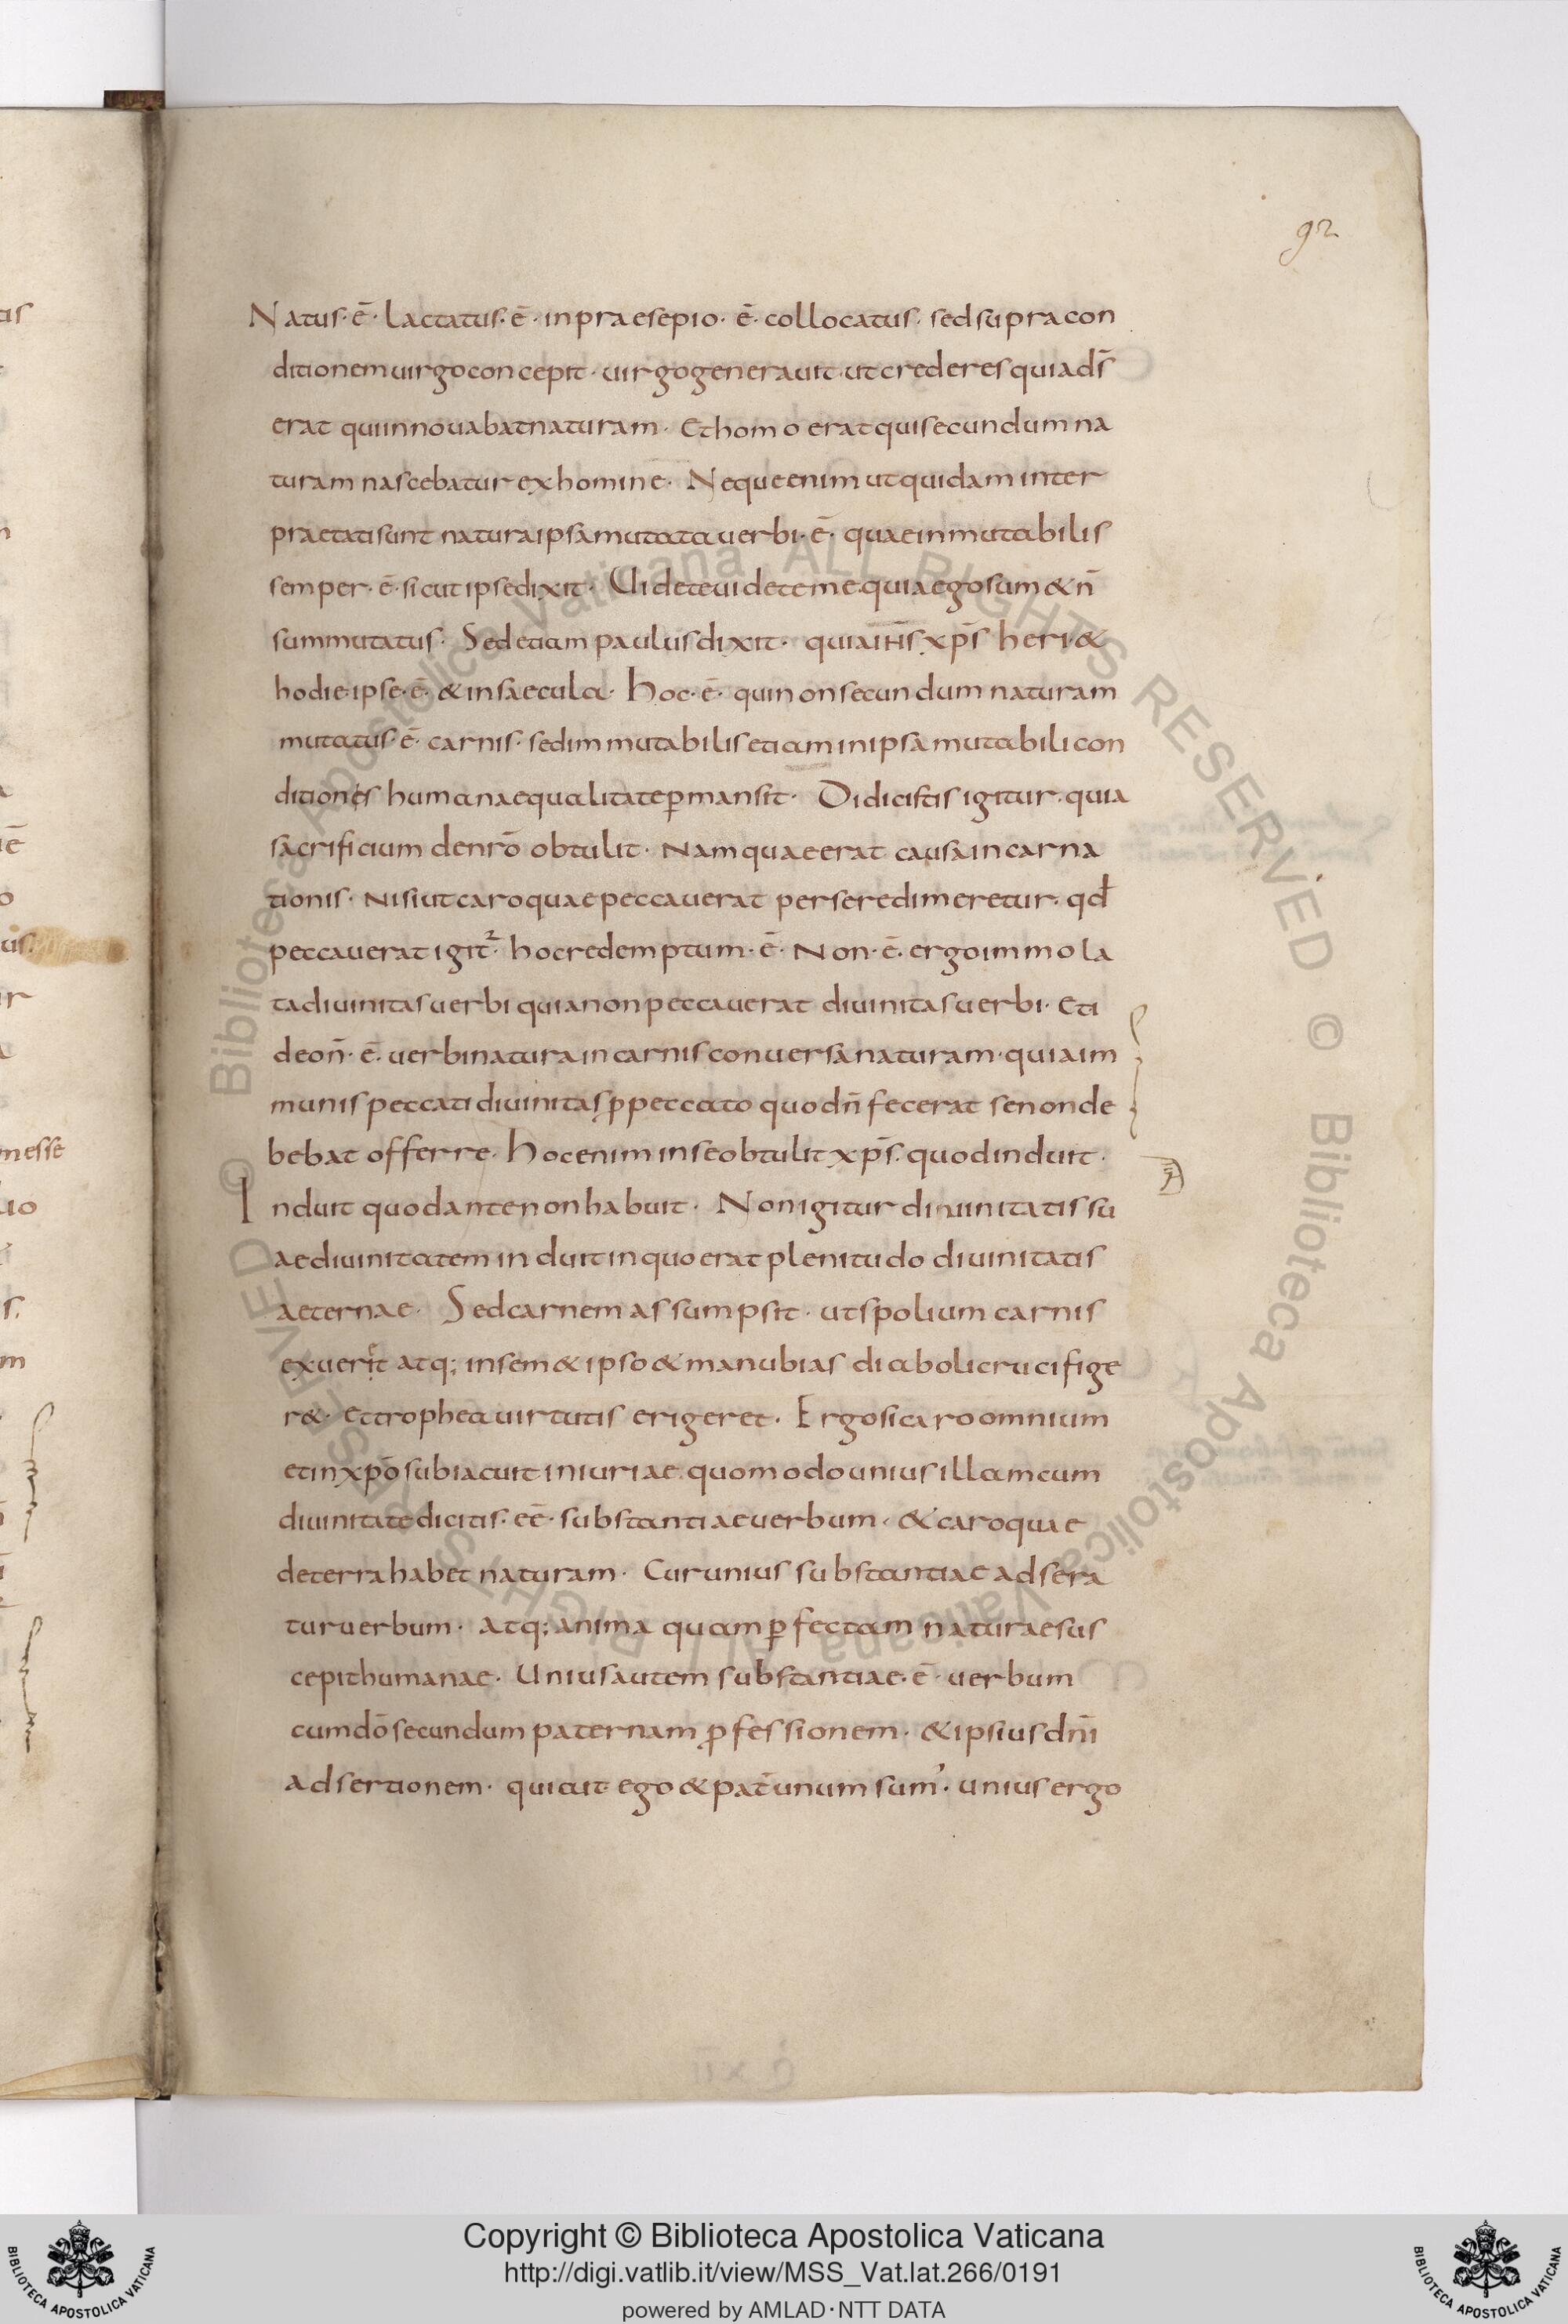 92
Natus· ē· Lactatus· ē· inpraesepio· ē· collocatus· sedsupracon
ditionemuirgoconcepit· uirgogenerauit· utcrederesquiads̄
erat quiinnouabatnaturam· Ethomo eratquisecundumna
turam nascebatur exhomine· Nequeenim utquidaminter
praetatisunt naturaipsamutatauerbi· ē· quaeinmutabilis
semper· ē· sicutipsedixit· Uideteuideteme·quiaegosum&n̄
summutatus· Sedetiam paulusdixit· quiaih̄s xp̄s heri·&
hodie·ipse·ē· &insaecula· hoc·ē· quinonsecundum naturam
mutatus·ē· carnis· sedimmutabilisetiaminipsa mutabilicon
ditiones humanaequalitateꝑmansit· Didicistisigitur·quia
sacrificium denr̄o obtulit· Namquaeerat causaincarna
tionis· Nisiutcaroquaepeccauerat perseredimeretur· qd̄
peccaueratigit᷑· hocredemptum·ē· Non·ē· ergoimmola
tadiuinitasuerbi quianonpeccauerat diuinitasuerbi· Eti
deon̄· ē· uerbinaturaincarnisconuersanaturam·quiaim
munispeccatidiuinitasꝓpeccato quodn̄fecerat senonde
bebat offerre· hocenim inseobtulit xp̄s· quodinduit·
Induit quodantenonhabuit· Nonigitur diuinitatissu
aediuinitatem induitinquoerat plenitudo diuinitatis
aeternae· Sedcarnem assumpsit· utspolium carnis
exuerit atq; insem&ipso&manubias diabolicrucifige
r&· ettropheauirtutis erigeret· Ergosicaroomnium
etinxp̄osubiacuit iniuriae·quomodouniusillamcum
diuinitatedicitis·eē·substantiaeuerbum· &caroquae
deterrahabet naturam· Curunius substantiae adsera
turuerbum· atq; anima quamꝑfectam naturaesus
cepithumanae· Uniusautem substantiae·ē· uerbum
cumdōsecundum paternam ꝓfessionem· &ipsiusdn̄i
adsertionem· quiait ego&pat̄unum sum᾿· uniusergo
Copyright © Biblioteca Apostolica Vaticana
http://digi.vatlib.it/view/MSS_Vat.lat.266/0191
powered by AMLAD·NTT DATA
BIBLIOTECA APOSTOLICA VATICANA
BIBLIOTECA APOSTOLICA VATICANA
© Biblioteca Apostolica Vaticana ALL RIGHTS RESERVED © Biblioteca Apostolica Vaticana ALL RIGHTS RESERVED